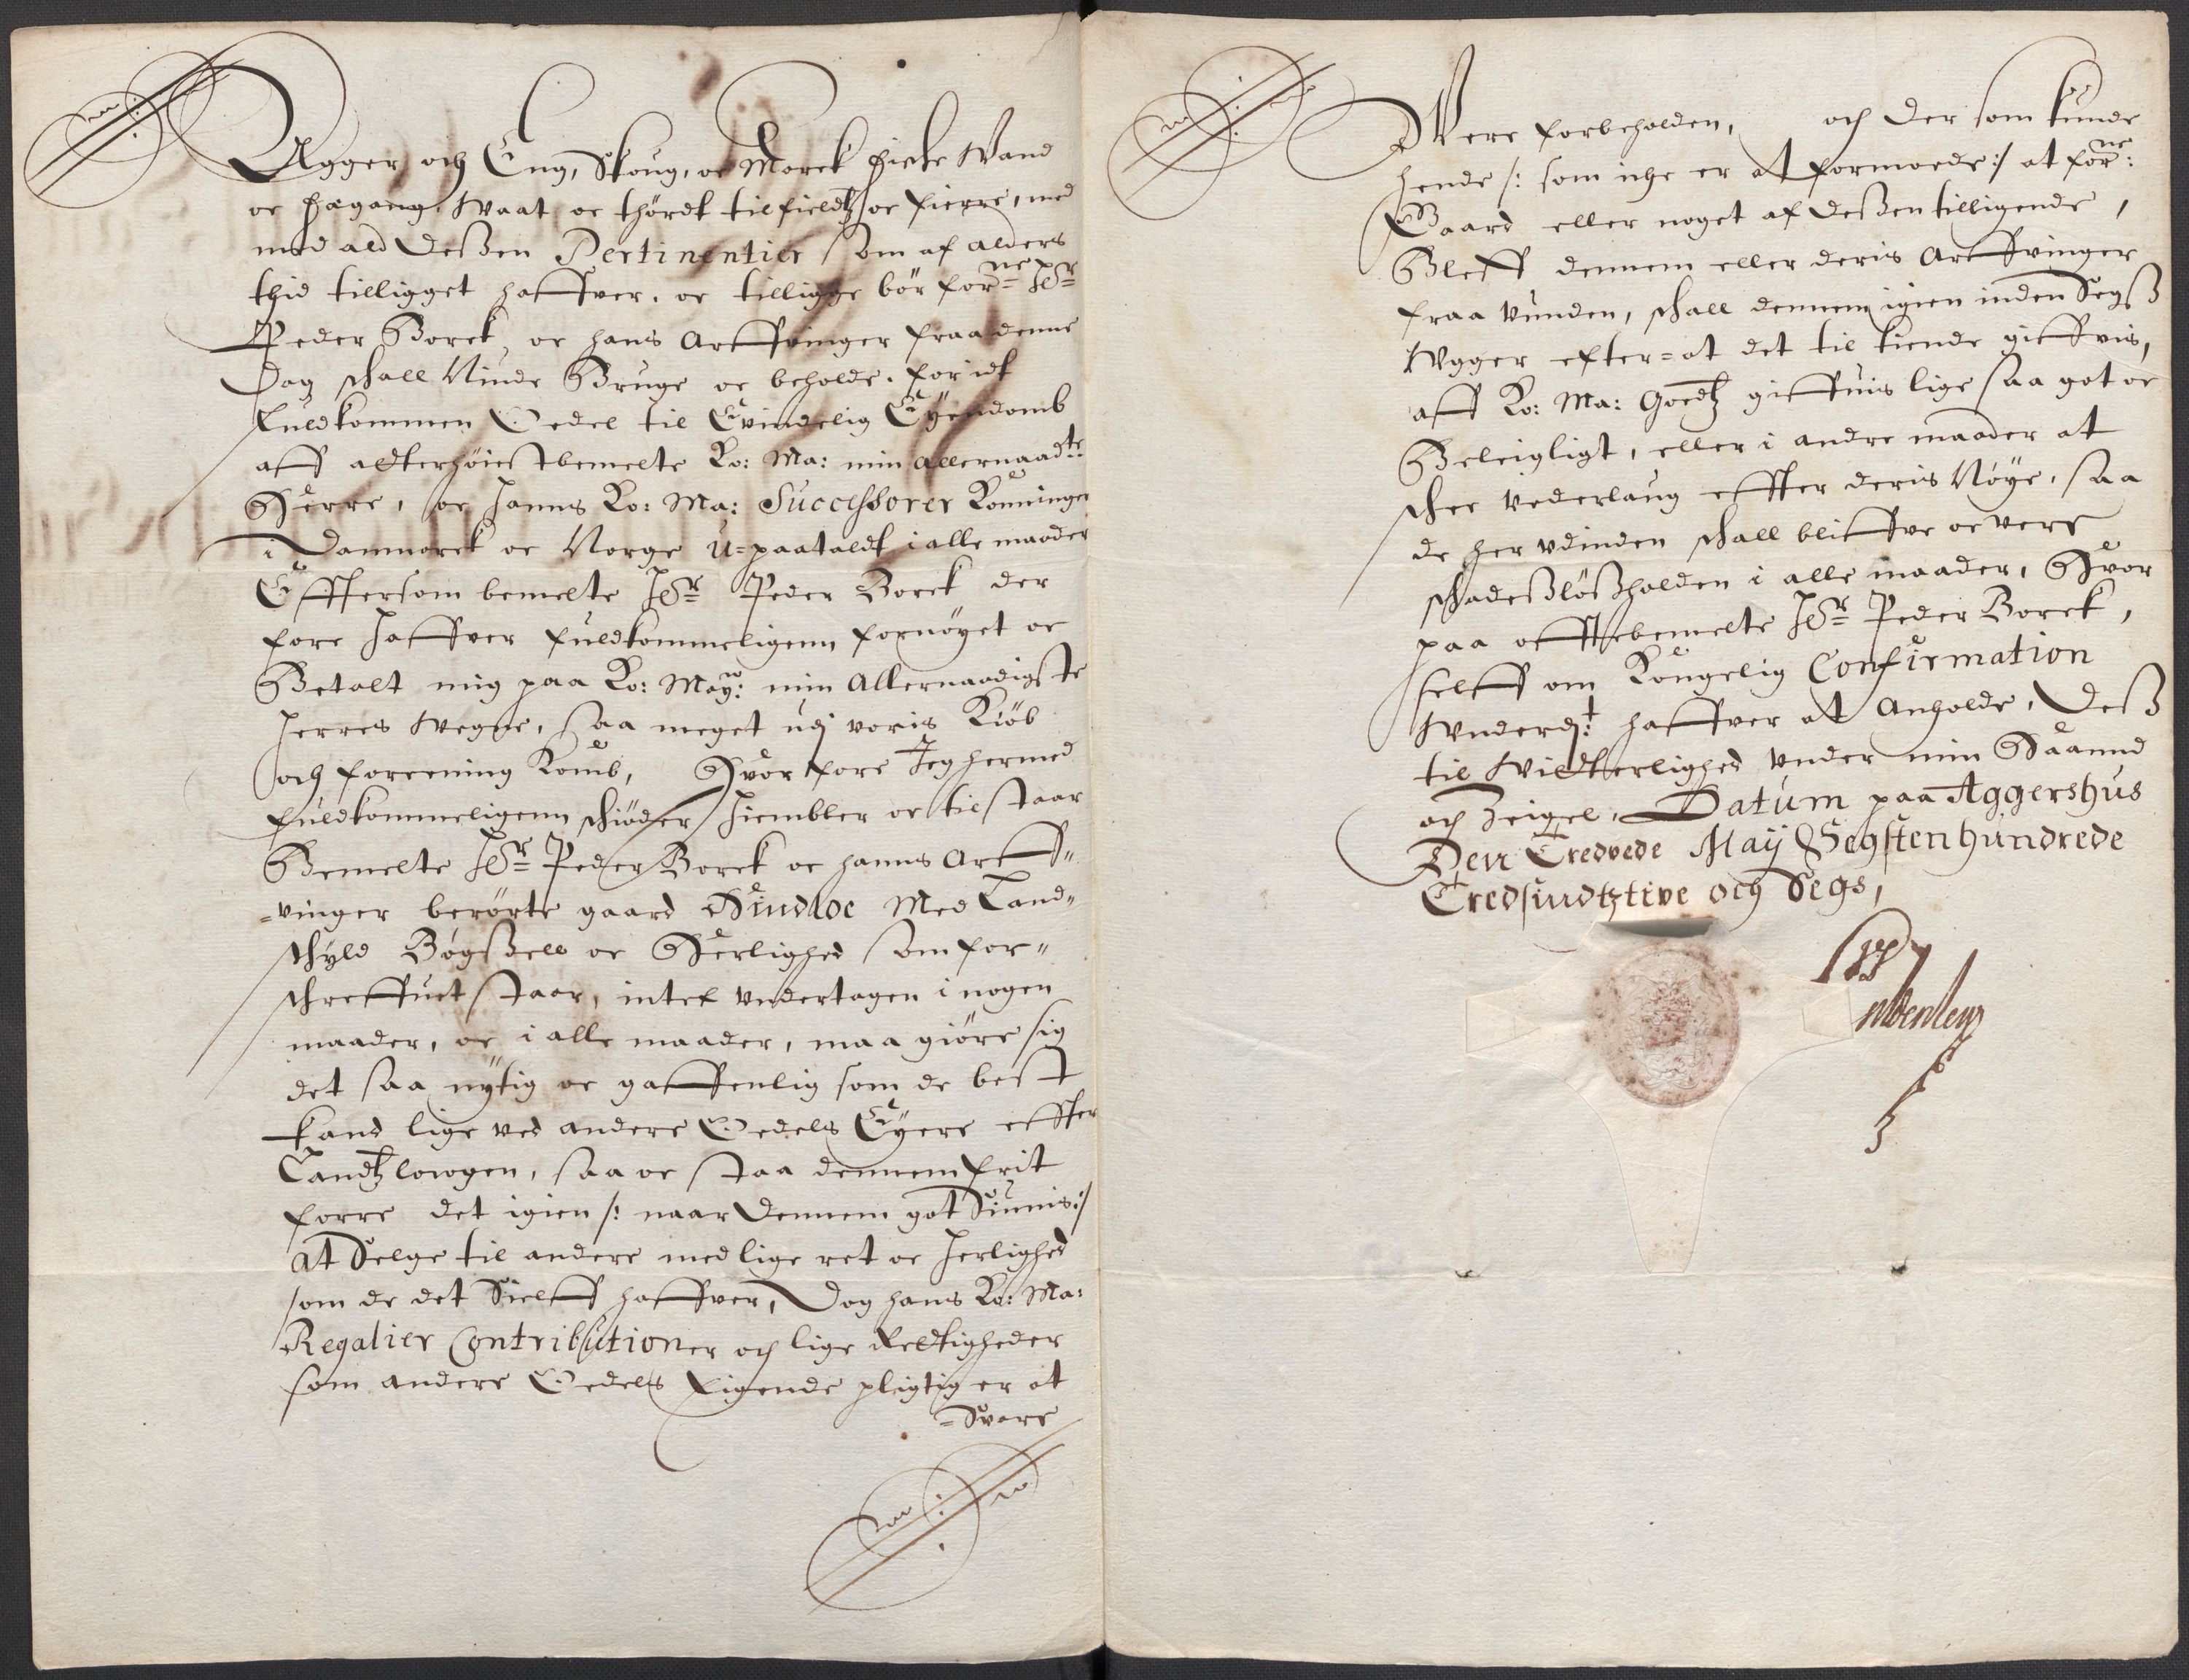 Agger och Eng, Skoug, oc Marck fiske Wand
oc fægang, Waat oc thørdt til fieldtz oc fierre, med
med ald Dessen Pertinentier som af alders
thid tilligget haffver, oc tilligge bør forne: Her
Peder Borck, oc hans Arffvinger fraa denne
Dag schall Niude Bruge oc beholde, for idt
fuldkommen Oedel til Evindelig Eyendomb
aff alterhøiestbemelte Ko: Ma: min allernaadte:
Herre, oc hanns Ko: Ma: Successorer Konninger
i Danmarck oc Norge u=paataldt i alle maader
Effttersom bemelte Her Peder Borck der
fore haffver fuldkommeligenn fornøyet oc
Betalt mig paa Ko: May: min Allernaadigste
Herres Wegne, saa meget udj voris Kiøb
och foreening Komb, Hvor fore Jeg hermed
fuldkommeligenn schiøder hiembler oc tilstaar
Bemelte Her Peder Borck oc hanns Arff„
=vinger berørte gaard Hindloe Med Land„
schyld Bøgsell oc Herlighed som for„
schreffuet staar, intet undertagen i nogen
maader, oc i alle maader, maa giøre sig
det saa nytig oc gaffenlig som de best
kand lige ved andere Oedels Eyere effter
Landtz lowgen, saa oc staa dennem frit
forre det igien /: naar Dennem got Siunis :/
At Selge til andere med lige ret oc herlighed
som de det Sielff haffver, Dog hans Ko: Ma:
Regalier Contributioner och lige Rettigheder
som andere Oedels Eigende pligtig er at
=Svare
Were forbeholden, och der som kunde
hende /: som iche er at formoede :/ at forne:
Gaard eller noget af Dessen tilligende,
Bleff dennem eller deris Arffvinger
fraa vunden, schall dennem igien inden Segs
Wgger efter=at det til kiende giffvis,
aff Ko: Ma: Goedtz giffuis lige saa got oc
Beleigligt, eller i andre maader at
schee vederlaug effter deris Nøye, saa
de her vdinden schall bliffve oc vere
schadesløsholden i alle maader, Hvor
paa offtebemelte Her Peder Borck,
selff om Kongelig Confirmation
Wnderdt: haffver at Anholde, Dess
til Vitterlighed under min Haannd
och Zeigel, Datum paa Aggershus
Den Tredvede Maij Segstenhundrede
Tredsindtztive och Segs,